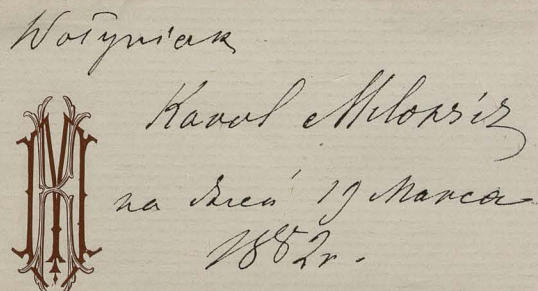 Wołyniak
Karol Milowicz
na dzień 19 Marca
1882 r.